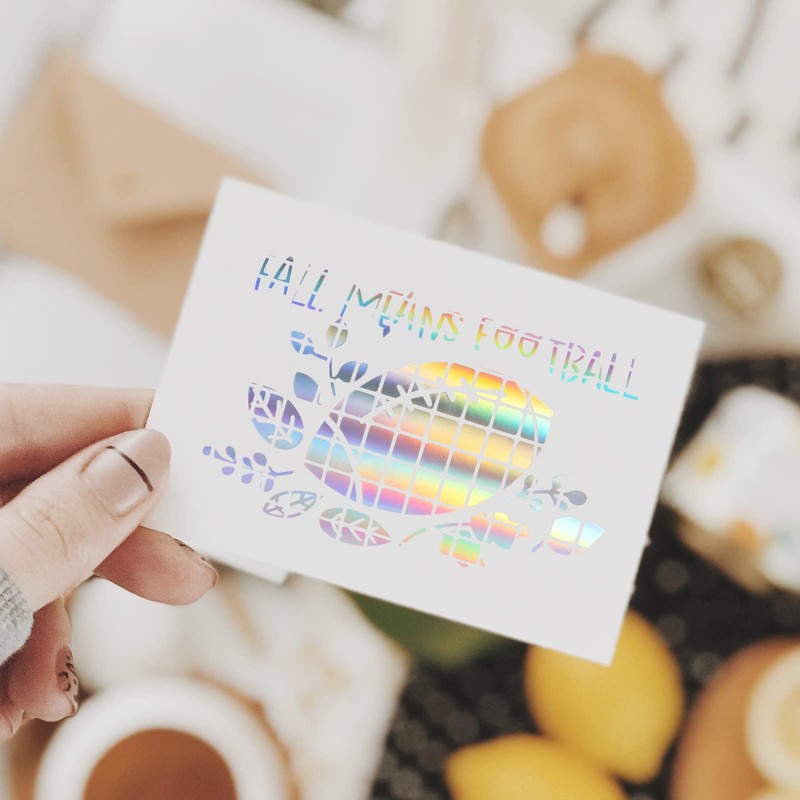 FALL MEANS FOOTBALL